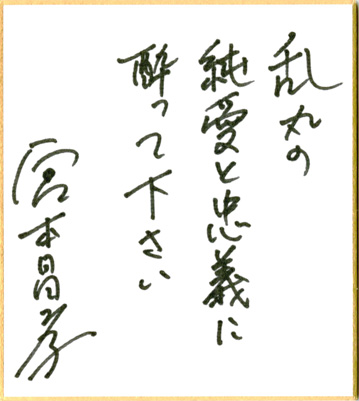 乱丸の
純愛と忠義に
酔って下さい
宮本昌孝